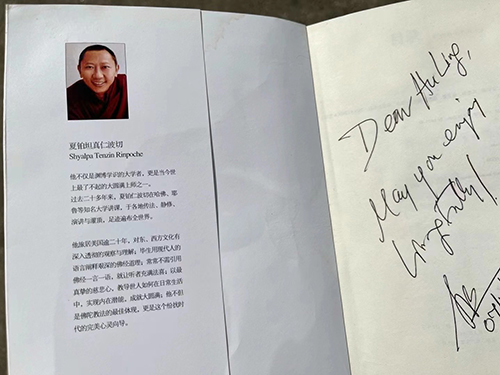 夏铂坦真仁波切
Shyalpa Tenzin Rinpoche
他不仅是渊博学识的大学者，更是当今世
上最了不起的大圆满上师之一。
过去二十多年来，夏铂仁波切在哈佛、耶
鲁等知名大学讲课，于各地传法、静修、
演讲与灌顶，足迹遍布全世界。
他旅居美国逾二十年，对东、西方文化有
深入透彻的观察与理解；毕生用现代人的
语言阐释艰深的佛经道理；常常不需引用
佛经一言一语，就让听者充满法喜；以最
真挚的慈悲心，教导世人如何在日常生活
中，实现内在潜能，成就大圆满；他不但
是佛陀教法的最佳体现，更是这个纷扰时
代的完美心灵向导。
Dear HuLing,
May you enjoy
Life fully!